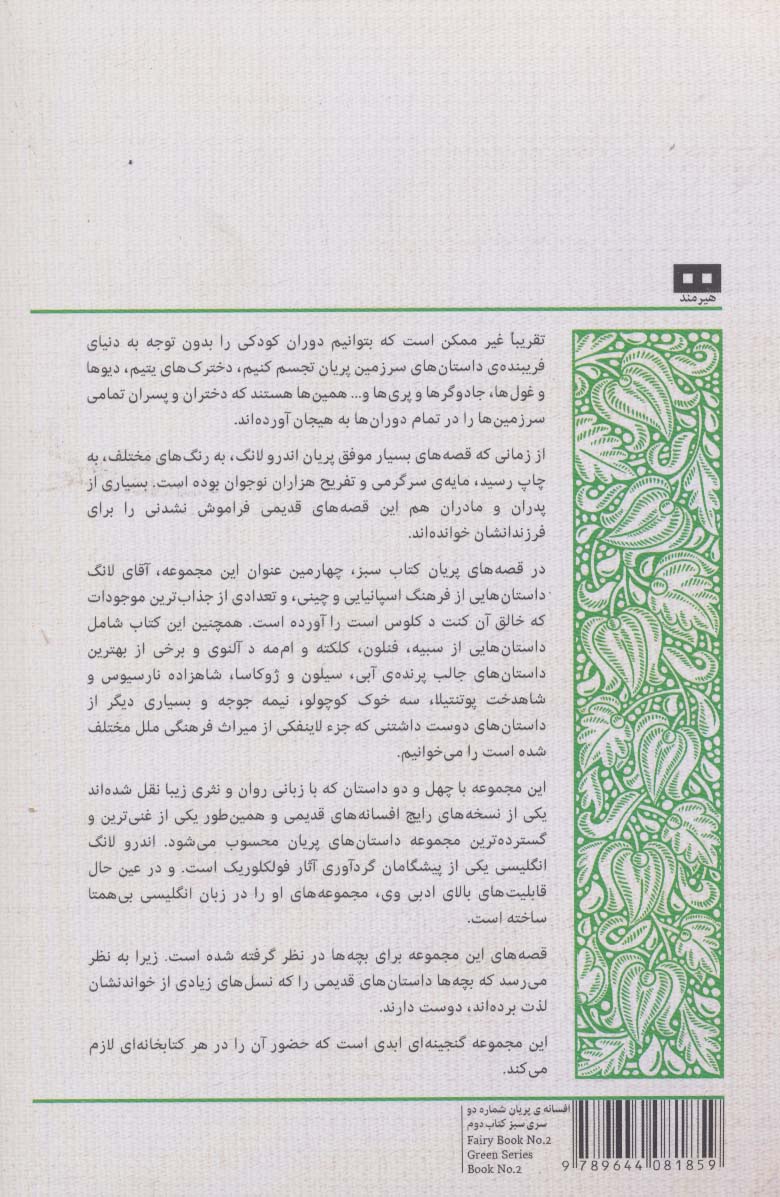 هیرمند
تقریباً غیر ممکن است که بتوانیم دوران کودکی را بدون توجه به دنیای
فریبنده‌ی داستان‌های سرزمین پریان تجسم کنیم، دخترک‌های یتیم، دیوها
و غول‌ها، جادوگرها و پری‌ها و... همین‌ها هستند که دختران و پسران تمامی
سرزمین‌ها را در تمام دوران‌ها به هیجان آورده‌اند.
از زمانی که قصه‌های بسیار موفق پریان اندرو لانگ، به رنگ‌های مختلف، به
چاپ رسید، مایه‌ی سرگرمی و تفریح هزاران نوجوان بوده است. بسیاری از
پدران و مادران هم این قصه‌های قدیمی فراموش نشدنی را برای
فرزندانشان خوانده‌اند.
در قصه‌های پریان کتاب سبز، چهارمین عنوان این مجموعه، آقای لانگ
داستان‌هایی از فرهنگ اسپانیایی و چینی، و تعدادی از جذاب‌ترین موجودات
که خالق آن کنت د کلوس است را آورده است. همچنین این کتاب شامل
داستان‌هایی از سبیه، فنلون، کلکته و ام‌مه د آلنوی و برخی از بهترین
داستان‌های جالب پرنده‌ی آبی، سیلون و ژوکاسا، شاهزاده نارسیوس و
شاهدخت پوتنتیلا، سه خوک کوچولو، نیمه جوجه و بسیاری دیگر از
داستان‌های دوست داشتنی که جزء لاینفکی از میراث فرهنگی ملل مختلف
شده است را می‌خوانیم.
این مجموعه با چهل و دو داستان که با زبانی روان و نثری زیبا نقل شده‌اند
یکی از نسخه‌های رایج افسانه‌های قدیمی و همین‌طور یکی از غنی‌ترین و
گسترده‌ترین مجموعه داستان‌های پریان محسوب می‌شود. اندرو لانگ
انگلیسی یکی از پیشگامان گردآوری آثار فولکلوریک است. و در عین حال
قابلیت‌های بالای ادبی وی، مجموعه‌های او را در زبان انگلیسی بی‌همتا
ساخته است.
قصه‌های این مجموعه برای بچه‌ها در نظر گرفته شده است. زیرا به نظر
می‌رسد که بچه‌ها داستان‌های قدیمی را که نسل‌های زیادی از خواندنشان
لذت برده‌اند، دوست دارند.
این مجموعه گنجینه‌ای ابدی است که حضور آن را در هر کتابخانه‌ای لازم
می‌کند.
افسانه ی پریان شماره دو
سری سبز کتاب دوم
Fairy Book No.2
Green Series
Book No.2
9 789644 081859